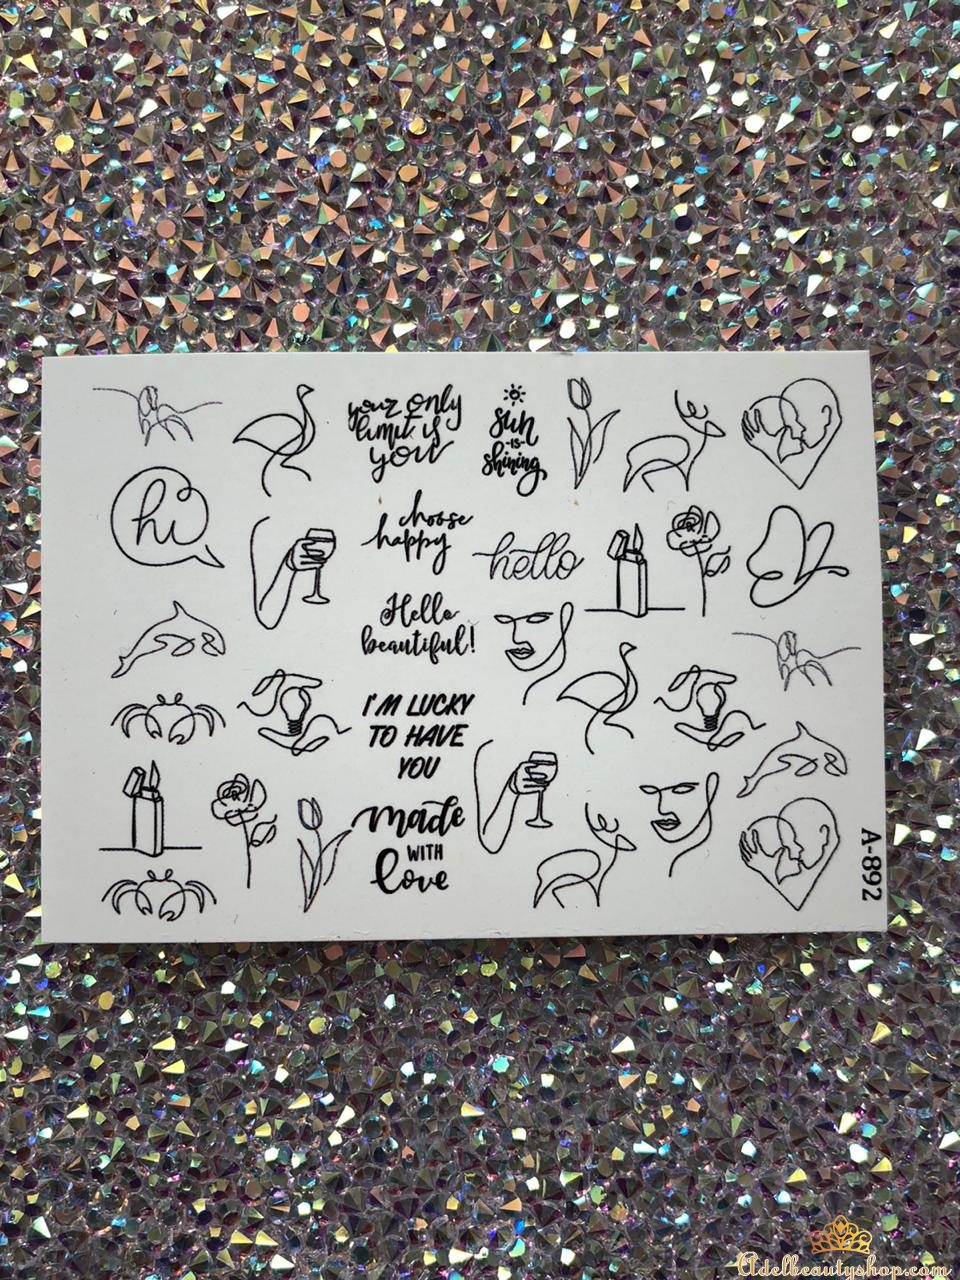 your only
limit is
you
sun
-is-
shining
hi
choose
happy
hello
Hello
beautiful!
I'M LUCKY
TO HAVE
YOU
made
WITH
love
A-892
Adelbeautyshop.com